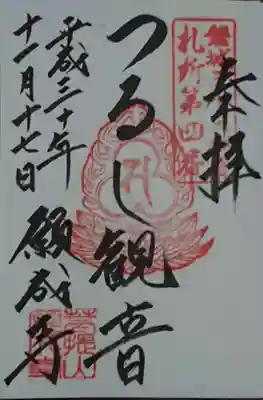 奉拝
札所第四番
つるし観音
平成三十年
十一月十七日
願成寺